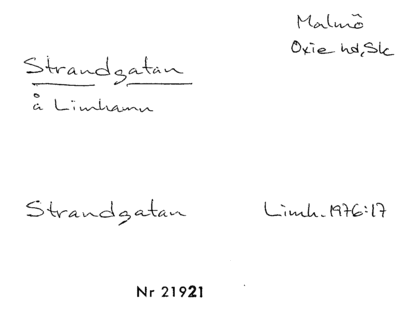 Malmö
Oxie hd, Sk
Strandgatan
å Limhamn
Strandgatan Limh. 1976:17
Nr 21921